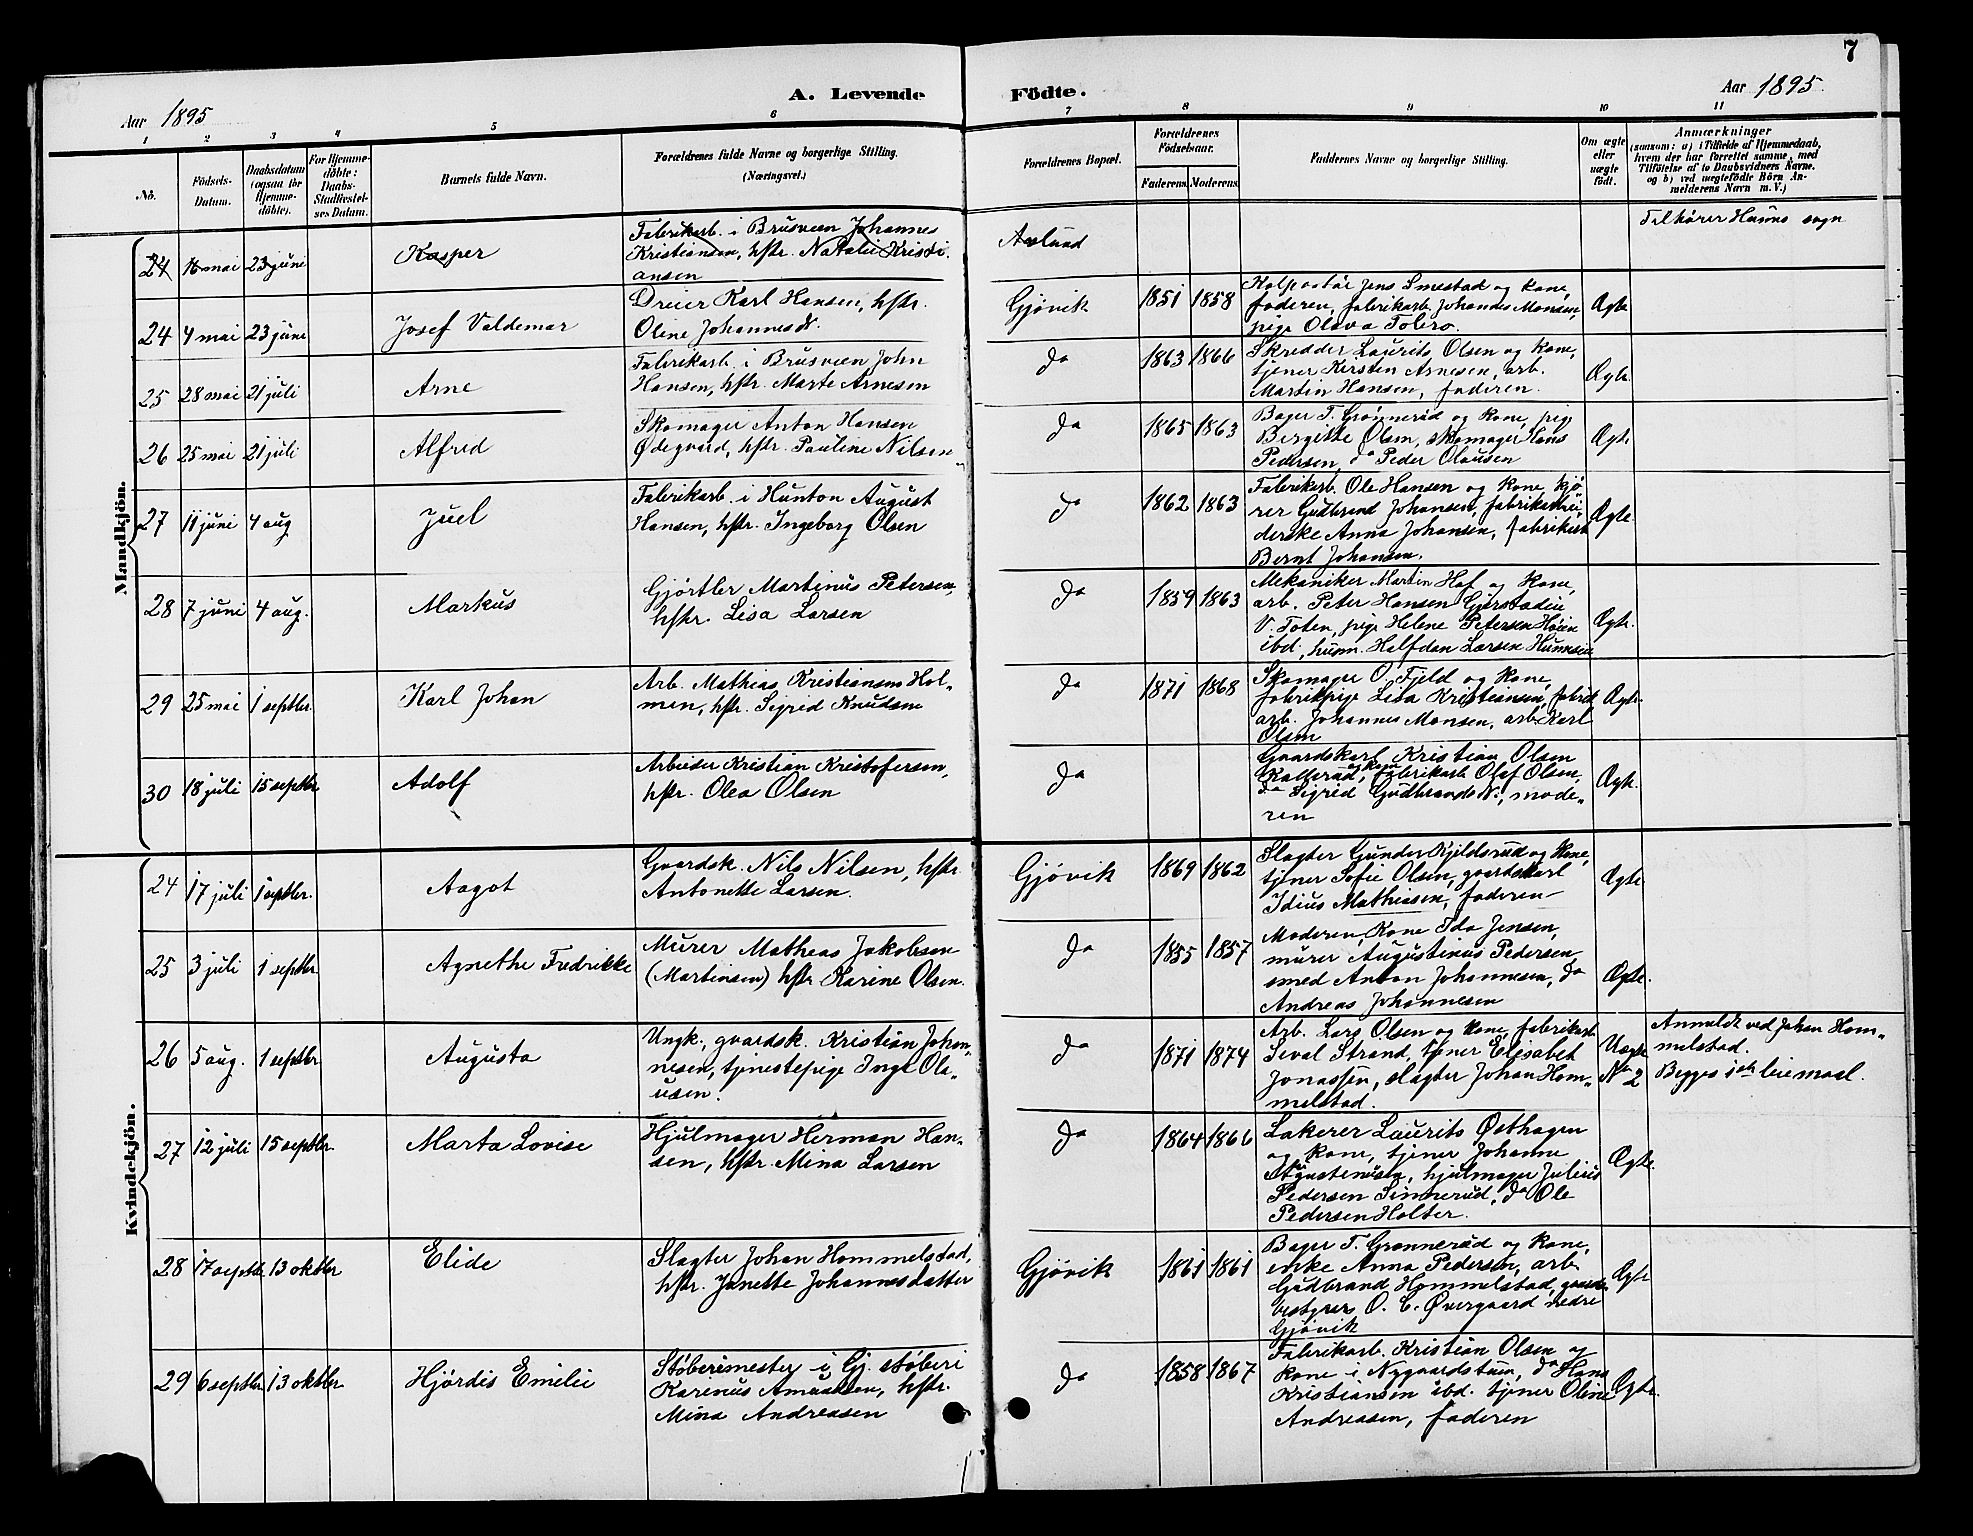 7
A. Levende Födte.
Aar 1895
Aar 1895.
1 2 3 4 5 6 7 8 9 10 11
No.
Födsels-Datum.
Daabsdatum (ogsaa for Hjemme-döbte).
For Hjemme-döbte: Daabs-Stadfæstel-ses Datum.
Barnets fulde Navn.
Forældrenes fulde Navne og borgerlige Stilling.
(Næringsvei.)
Forældrenes Bopæl.
Forældrenes Födselsaar.
Faderens. Moderens.
Faddernes Navne og borgerlige Stilling.
Om ægte eller uægte födt.
Anmærkninger
(saasom: a) i Tilfælde af Hjemmedaab,
hvem der har forrettet samme, med
Tilföielse af to Daabsvidners Navne.
og b) ved uægtefödte Börn An-
melderens Navn m. V.)
Mandkjön.
24 16 mai 23 juni
Kasper
Fabrikarb. i Brusveen Johannes
Kristiansen, hstr. Natalie Kristi-
ansen
Aaslund
Tilhører Hunns sogn
24 4 mai 23 juni
Josef Valdemar
Dreier Karl Hansen, hstr.
Oline Johannesdt.
Gjøvik
1851 1858
Jens Smestad og kone,
faderen, fabrikarb. Johannes Monsen,
pige Olava
Ægte
25 28 mai 21 juli
Arne
Fabrikarb. i Brusveen John
Hansen, hstr. Marte Arnesen
Do
1863 1866
Skredder Laurits Olsen og kone,
tjener Kirsten Arnesen, arb.
Martin Hansen, faderen.
Ægte.
26 25 mai 21 juli
Alfred
Skomager Anton Hansen
Ødegaard, hstr. Pauline Nilsen
Do
1865 1863
Bager T. Grønnerud og kone, pige
Bergitte Olsen, skomager Hans
Pedersen, do Peder Olausen
Ægte.
27 11 juni 4 aug
Juel
Fabrikarb. i Hunton August
Hansen, hstr. Ingeborg Olsen
Do
1862 1863
Fabrikarb. Ole Hansen og kone, kjø-
rer Gudbrand Johansen, fabrikarbei-
derske Anna Johansen, fabrikarb
Bernt Johansen.
Ægte.
28 7 juni 4 aug.
Markus
Gjørtler Martinus Petersen,
hstr. Lisa Larsen
Do
1859 1863
Mekaniker Martin Hof og kone,
arb. Peter Hansen
V. Toten, pige Helene Petersen Høien
ibd., husm. Halfdan Larsen
Ægte.
29 25 mai 1 septbr.
Karl Johan
Arb. Mathias Kristiansen Hol-
men, hstr. Sigrid Knudsen
Do
1871 1868
Skomager O. Fjeld og kone,
fabrikpige Lisa Kristiansen, fabrik
arb. Johannes Monsen, arb. Karl
Olsen
Ægte.
30 18 juli 15 septbr
Adolf
Arbeider Kristian Kristofersen,
hstr. Olea Olsen
Do
Gaardskarl Kristian Olsen
Kallerud, og kone, fabrikarb Olaf Olsen,
do Sigrid Gudbrandsdt., mode-
ren
Ægte.
Kvindekjön.
24 17 juli 1 septbr.
Aagot
Gaardsk. Nils Nilsen, hstr
Antonette Larsen.
Gjøvik
1869 1862
Slagter Gunder Kjeldsrud og kone,
tjener Sofie Olsen, gaardskarl
Idius Mathiasen, faderen
Ægte.
25 3 juli 1 septbr
Agnethe Fredrikke
Murer Mathias Jakobsen
(Martensen) hstr Karine Olsen.
Do
1855 1857
Moderen, Kone Ida Jensen,
murer Augustinus Pedersen,
smed Anton Johannesen, do
Andreas Johannesen
Ægte.
26 5 aug. 1 septbr
Augusta
Ungk., gaardsk. Kristian Johan-
nesen, tjenestepige Inga Ola-
usen.
Do
1871 1874
Arb. Lars Olsen og kone, fabrikarb
Sival Strand, tjener Elisabet
Jonassen, slagter Johan Hom-
melstad.
Uægte
No 2
Anmeldt ved Johan Hom-
melstad.
Begges 1ste leiemaal.
27 12 juli 15 septbr.
Marta Lovise
Hjulmager Herman Han-
sen, hstr. Mina Larsen
Do
1864 1866
Lakerer Laurits Østhagen
og kone, tjener Johanne
Augustinusen, hjulmager Julius
Pedersen Sinnerud, do Ole
Pedersen Holter.
Ægte.
28 17 septbr 13 oktbr
Elide
Slagter Johan Hommelstad,
hstr. Janette Johannesdatter
Gjøvik
1861 1861
Bager T. Grønnerud og kone,
enke Anna Pedersen, arb.
Gudbrand Hommelstad, gaards-
bestyrer O. C. Øvergaard nedre
Gjøvik
Ægte
29 6 septbr 13 oktbr
Hjørdis Emilie
Støberimester i Gj. støberi
Karinus Amundsen, hstr.
Mina Andreasen
Do
1858 1867
Fabrikarb. Kristian Olsen og
kone i Nygaardstuen, do Hans
Kristiansen ibd. tjener Oline
Andreasen, faderen
Ægte.